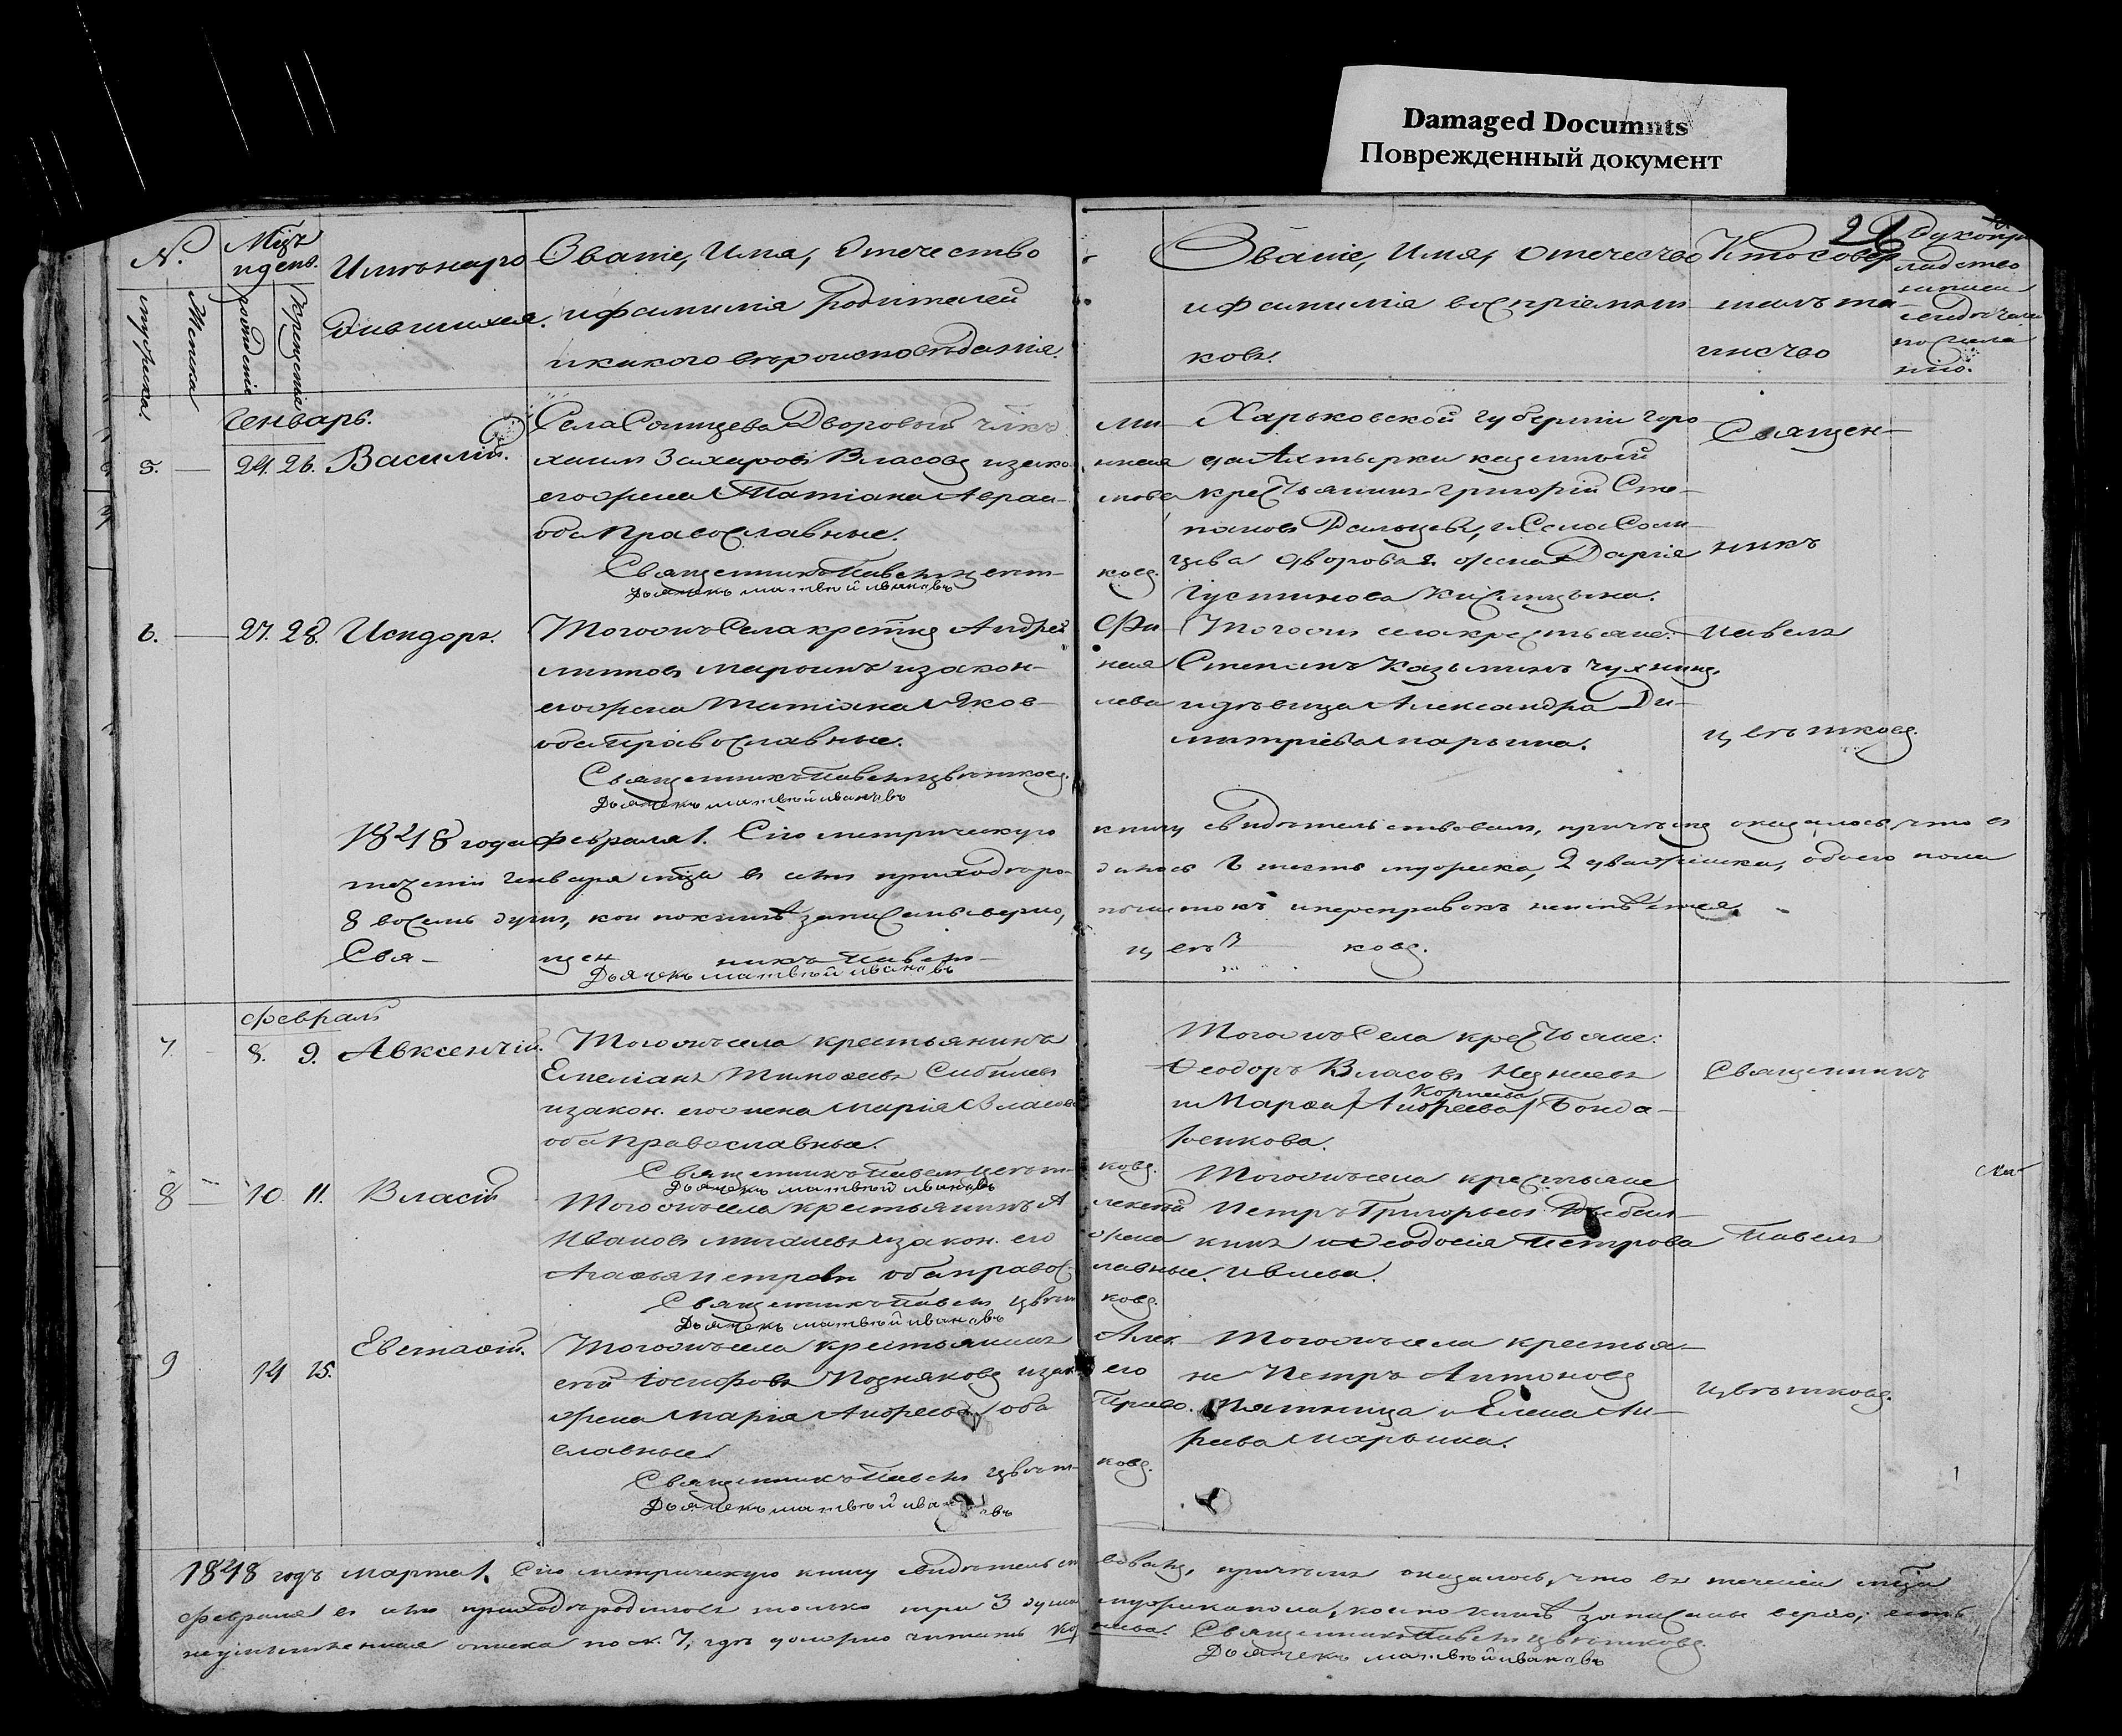 Damaged Documnts
Поврежденный документ
№.
Мцъ
и день.
мужска.
Женска
рожденія
Крещенія
Имя наро
дившихся.
Званіе, Имя, Отечество
и фамилія Родителей
и какого вѣроисповѣданія.
Званіе, Имя, Отечество
и фамилія воспріемни
ковъ.
Кто совер
шалъ та
инство
Генварь.
5.
24. 26. Василій.
Села Солнцева Дворовый члкъ Ми
хаилъ Захаровъ Власовъ и закон ная
его жена Татіана Авраа мова
оба Православные.
Священникъ Павелъ Цвѣт ковъ.
Дьячекъ Матвѣй Ивановъ
Харьковской губерніи горо
да Ахтырки казенный
крестьянинъ Григорій Сте
пановъ и Села Солн
цева дворовая жена Дарія
Густинова
Священ
никъ
6.
27. 28. Исидоръ.
Тогожъ Села крестнъ Андрей Фи
липповъ Марьинъ и закон ная
его жена Татіана Яков лева
оба Православные.
Священникъ Павелъ Цвѣтковъ.
Дьячекъ Матвѣй Ивановъ
Тогожъ села крестьяне:
Степанъ Казьминъ
и дѣвица Александра Ди
митріева Марьина.
Павелъ
Цвѣтковъ.
1848 года Февраля 1. Сію метрическую книгу свидѣтельствовали, причемъ оказалось, что въ
теченіи Генваря мца въ семъ приходѣ ро дилось 6 шесть мужеска, 2 два женска, обоего пола
8 восемь душъ, кои по книгѣ записаны верно, и неисправокъ неимѣется.
Свя щен никъ Павелъ Цвѣт ковъ.
Дьячекъ Матвѣй Ивановъ
Февраль
7.
8. 9. Авксентій.
Тогожъ села крестьянинъ
Емеліанъ Тимофеевъ
и закон. его жена Марія Власова
оба Православные.
Священникъ Павелъ Цвѣт ковъ.
Дьячекъ Матвѣй Ивановъ
Тогожъ Села крестьяне:
Ѳеодоръ Власовъ
и Марѳа Андреева Бонда
Корнеева
ренкова.
Священникъ
8
10 11. Власій
Тогожъ села крестьянинъ А лексѣй
Ивановъ и закон. его жена
Агафья Петрова оба правос лавные.
Священникъ Павелъ Цвѣт ковъ.
Дьячекъ Матвѣй Ивановъ
Тогожъ села крестьяне
Петръ Григорьевъ
кинъ и Ѳеодосія Петрова
Ивлева.
Павелъ
9
14 15. Евстафій.
Тогожъ села крестьянинъ Алек
сѣй Іосифовъ Поздняковъ и зак. его
жена Марія Андреева оба Право
славные.
Священникъ Павелъ Цвѣт ковъ.
Дьячекъ Матвѣй Ивановъ
Тогожъ села крестья
не Петръ Антоновъ
Пятница и Елена Ан
реева Марьина.
Цвѣтковъ.
1848 годъ Марта 1. Сію метрическую книгу свидѣтельст вовали, причемъ оказалось, что въ теченіи мца
Февраля въ семъ приходѣ родилось только три 3 души мужеска пола, кои по книгѣ записаны верно, есть
неумышленная описка по ст. 7, гдѣ должно читать Кор неева. Священникъ Павелъ Цвѣтковъ.
Дьячекъ Матвѣй Ивановъ